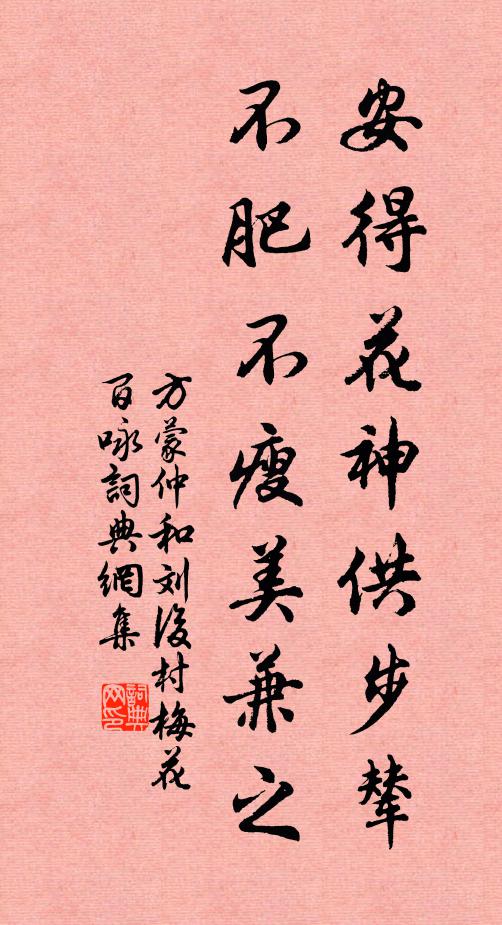 安得花神供步輦
不肥不瘦美兼之
方蒙仲和刘後村梅花
百咏詞典網集
詞典网印